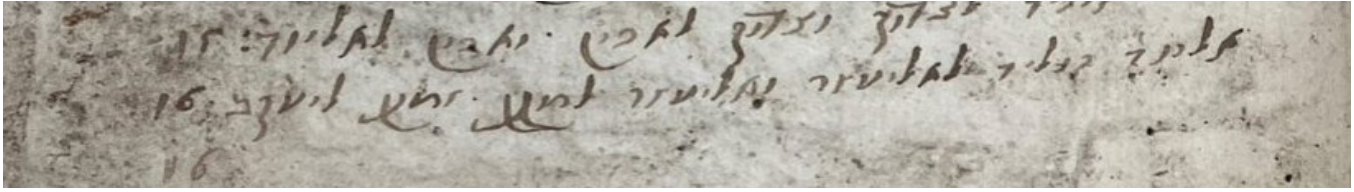 לצדוק וצדוק לאכין · ואכין לאליוד: 15
אליוד הוליד לאליעזר ואליעזר למתן · ומתן ליעקב: 16
16